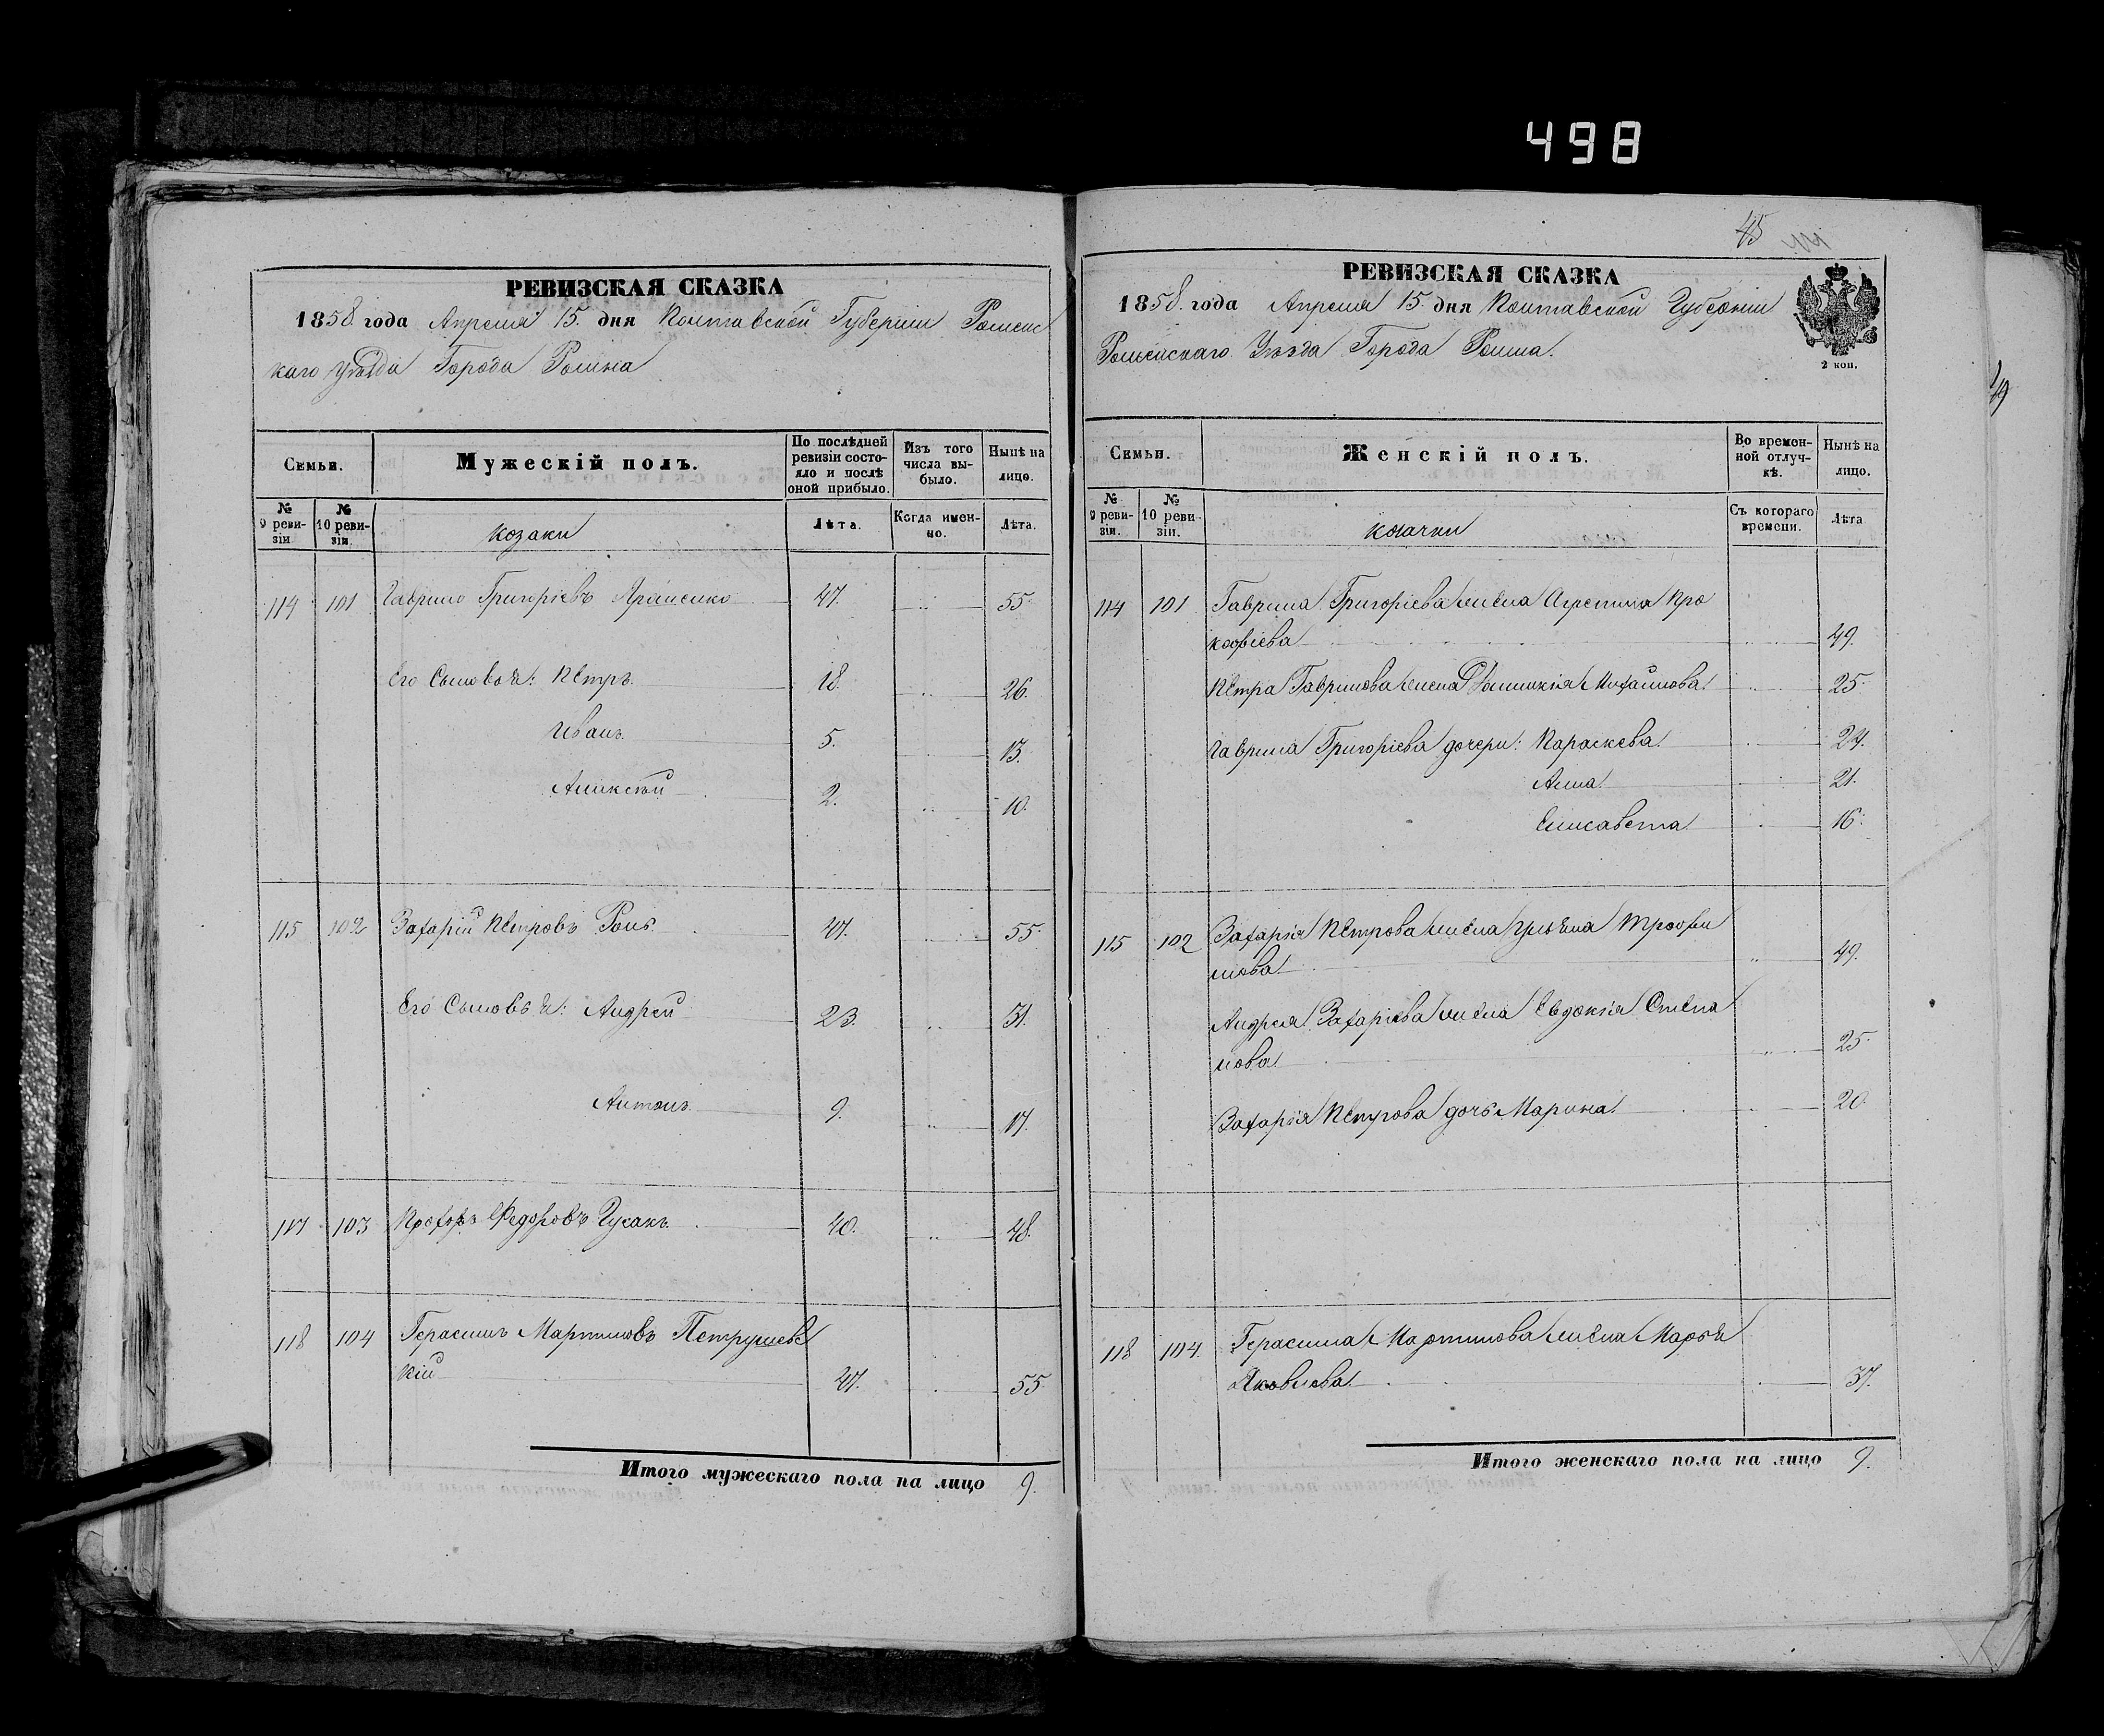 498
45
РЕВИЗСКАЯ СКАЗКА
1858 года Апреля 15. дня Полтавской Губернии Роменс
каго Уѣзда Города Ромна
Семьи.
Мужескій полъ.
По послѣдней ревизіи состояло и послѣ оной прибыло.
Изъ того числа выбыло.
Нынѣ на лицо.
№ 9 ревизіи
№ 10 ревизіи.
козаки
Лѣта.
Когда именно.
Лѣта.
114 101 Гаврило Григорьевъ 47. 55.
Его Сыновья: Петръ 18. 26.
Иванъ 5. 13.
Алексѣй 2. 10.
115 102 Захарій Петровъ 47. 55.
Его Сыновья: Андрей 23. 31.
Антонъ 9. 17.
117 103 Прохоръ Федоровъ Гусакъ 40. 48.
118 104 Герасимъ Мартиновъ Петрушевс
кій 47. 55.
Итого мужескаго пола на лицо 9.
РЕВИЗСКАЯ СКАЗКА
1858. года Апреля 15. дня Полтавской Губерніи
Роменскаго Уѣзда Города Ромна.
2 коп.
Семьи.
Женскій полъ.
Во временной отлучкѣ.
Нынѣ на лицо.
№ 9 ревизіи.
№ 10 ревизіи.
козачки
Съ котораго времени.
Лѣта
114 101 Гаврила Григоріева жена Агрепина Про
кофіева 49.
Петра Гаврилова жена Михайлова 25.
Гаврила Григоріева дочери: Параскева 24.
Анна 21.
Елисавета 16.
115 102 Захарія Петрова жена Трофи
мова 49.
Андрея Захаріева жена Евдокія Степа
нова 25.
Захарія Петрова дочь Марина 20
118 104. Герасима Мартинова жена Марья
Яковлева 37.
Итого женскаго пола на лицо 9.